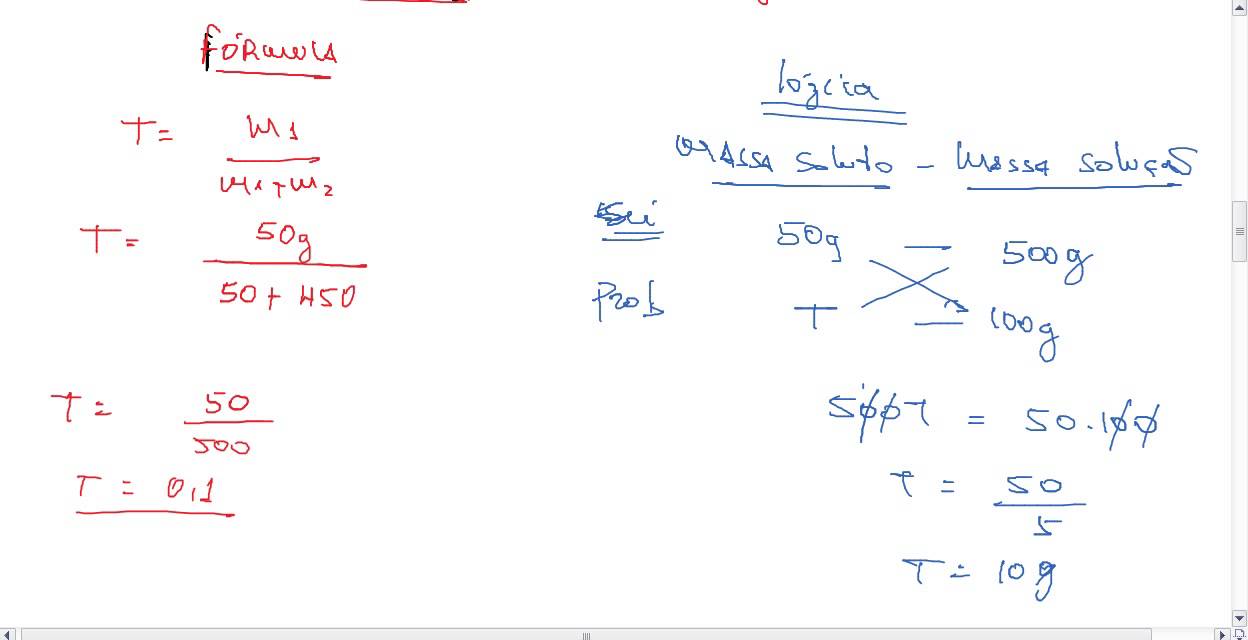 FÓRMULA
T = m1
m1+m2
T = 50g
50 + 450
T = 50
500
T = 0,1
lógica
MASSA soluto – massa solução
Sei 50g — 500g
Prob T — 100g
500T = 50.100
T = 50
5
T = 10g